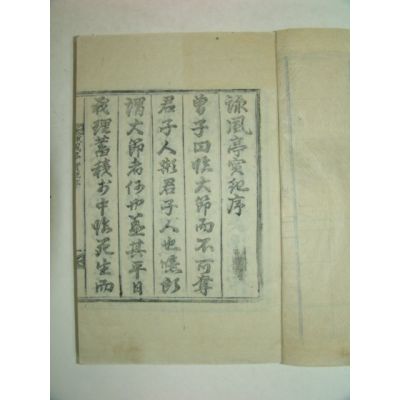 詠風亭實記序
曾子曰臨大節而不可奪
君子人歟君子人也噫所
謂大節者何也蓋其平日
義理蓄積於中臨死生而